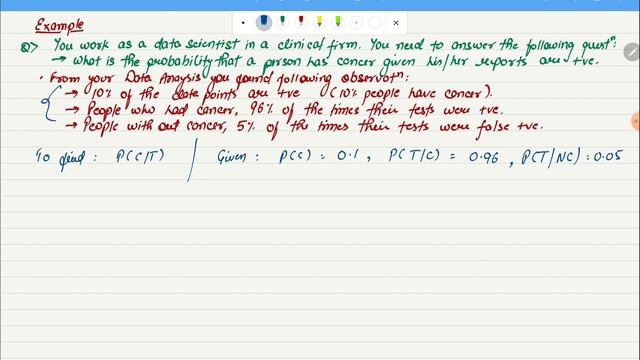 Example
Q> You work as a data scientist in a clinical firm. You need to answer the following questⁿ:
→ What is the probability that a person has cancer given his/her reports are +ve.
• From your Data Analysis you found following observatⁿ:
→ 10% of the data points are +ve (10% people have cancer).
→ People who had cancer, 96% of the times their tests were +ve.
→ People with out cancer, 5% of the times their tests were false +ve.
To find : P(C/T) | Given : P(C) = 0.1, P(T/C) = 0.96, P(T/NC) = 0.05